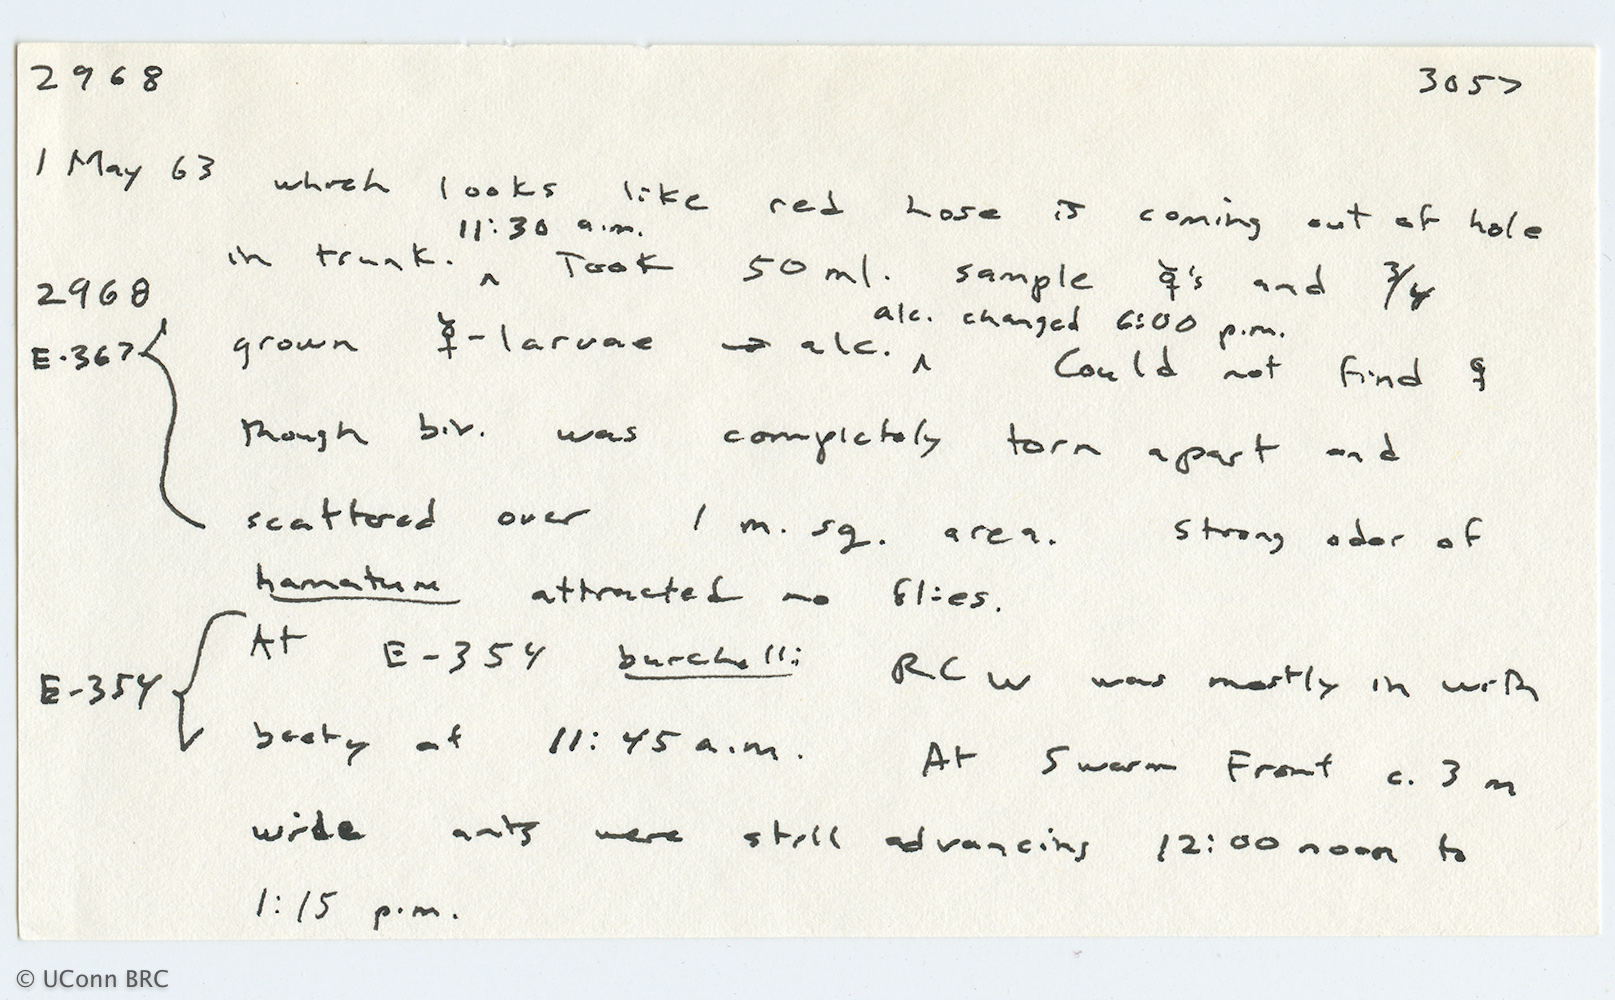 2968 3057
1 May 63 which looks like red hose is coming out of hole
11:30 a.m.
in trunk. ^ Took 50 ml. sample ☿'s and 3/4
2968
alc. changed 6:00 p.m.
E-367 grown ☿-larvae → alc. ^ Could not find ♀
though biv. was completely torn apart and
scattered over 1 m. sq. area. Strong odor of
hamatum attracted no flies.
At E-354 burchelli RCW was mostly in with
E-354
booty at 11:45 a.m. At Swarm Front c. 3 m
wide ants were still advancing 12:00 noon to
1:15 p.m.
© UConn BRC